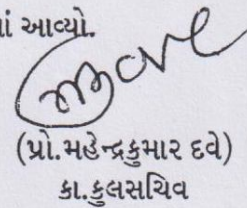 આવ્યો.
(પ્રો.મહેન્દ્રકુમાર દવે)
કા.કુલસચિવ